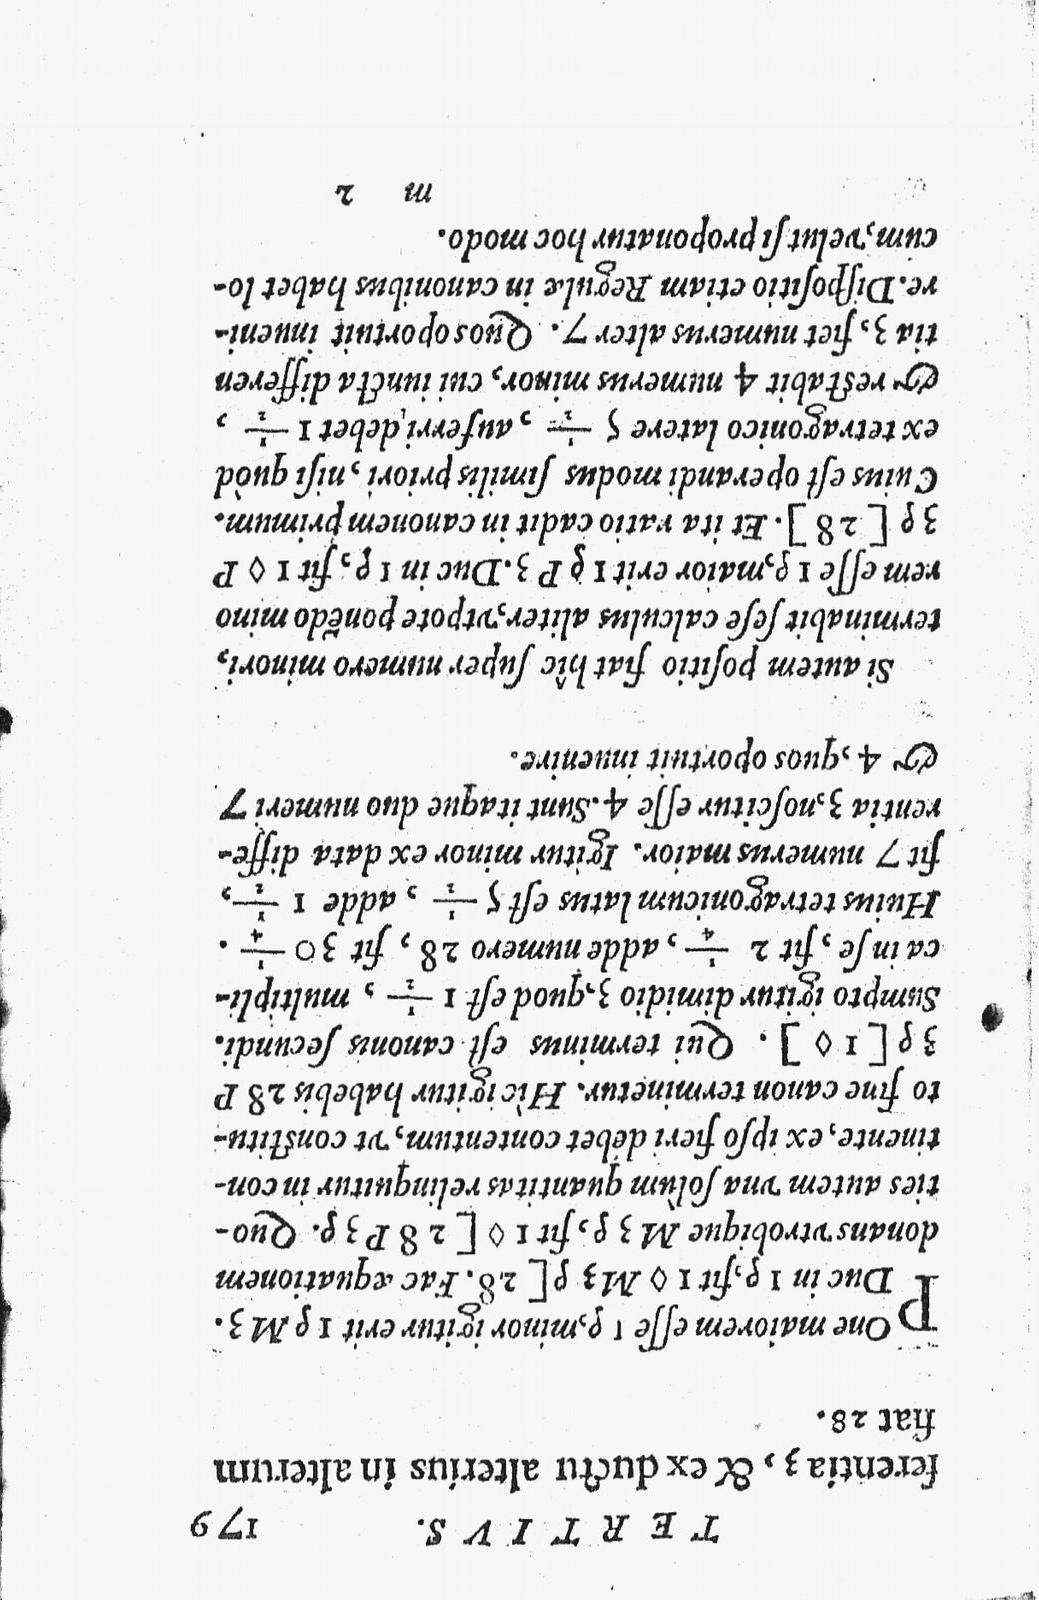 T E R T I V S. 179
ferentia 3, & ex ductu alterius in alterum
fiat 28.
POne maiorem esse 1 ρ, minor igitur erit 1 ρ M 3.
Duc in 1 ρ, fit 1 ◊ M 3 ρ [ 28. Fac æquationem
donans vtrobique M 3 ρ, fit 1 ◊ [ 2 8 P 3 ρ. Quo-
ties autem vna solùm quantitas relinquitur in con-
tinente, ex ipso fieri debet contentum, vt constitu-
to fine canon terminetur. Hîc igitur habebis 28 P
3 ρ [ 1 ◊ ] . Qui terminus est canonis secundi.
Sumpto igitur dimidio 3, quod est 1 1/2 , multipli-
ca in se, fit 2 1/4 , adde numero 28 , fit 30 1/4 .
Huius tetragonicum latus est 5 1/2 , adde 1 1/2 ,
fit 7 numerus maior. Igitur minor ex data diffe-
rentia 3, noscitur esse 4. Sunt itaque duo numeri 7
& 4, quos oportuit inuenire.
Si autem positio fiat hîc super numero minori,
terminabit sese calculus aliter, vtpote ponēdo mino
rem esse 1 ρ, maior erit 1 ρ P 3. Duc in 1 ρ, fit 1 ◊ P
3 ρ [ 2 8 ]. Et ita ratio cadit in canonem primum.
Cuius est operandi modus similis priori, nisi quòd
ex tetragonico latere 5 1/2 , auferri debet 1 1/2 ,
& restabit 4 numerus minor, cui iuncta differen
tia 3, fiet numerus alter 7. Quos oportuit inueni-
re. Dispositio etiam Regulæ in canonibus habet lo-
cum, velut si proponatur hoc modo.
m 2